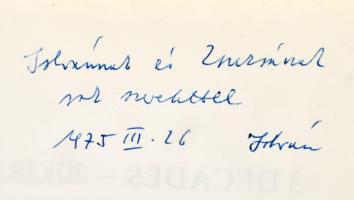 Istvánnak és Zsuzsának
sok szeretettel
1975 III. 26 István
3 DECADES -